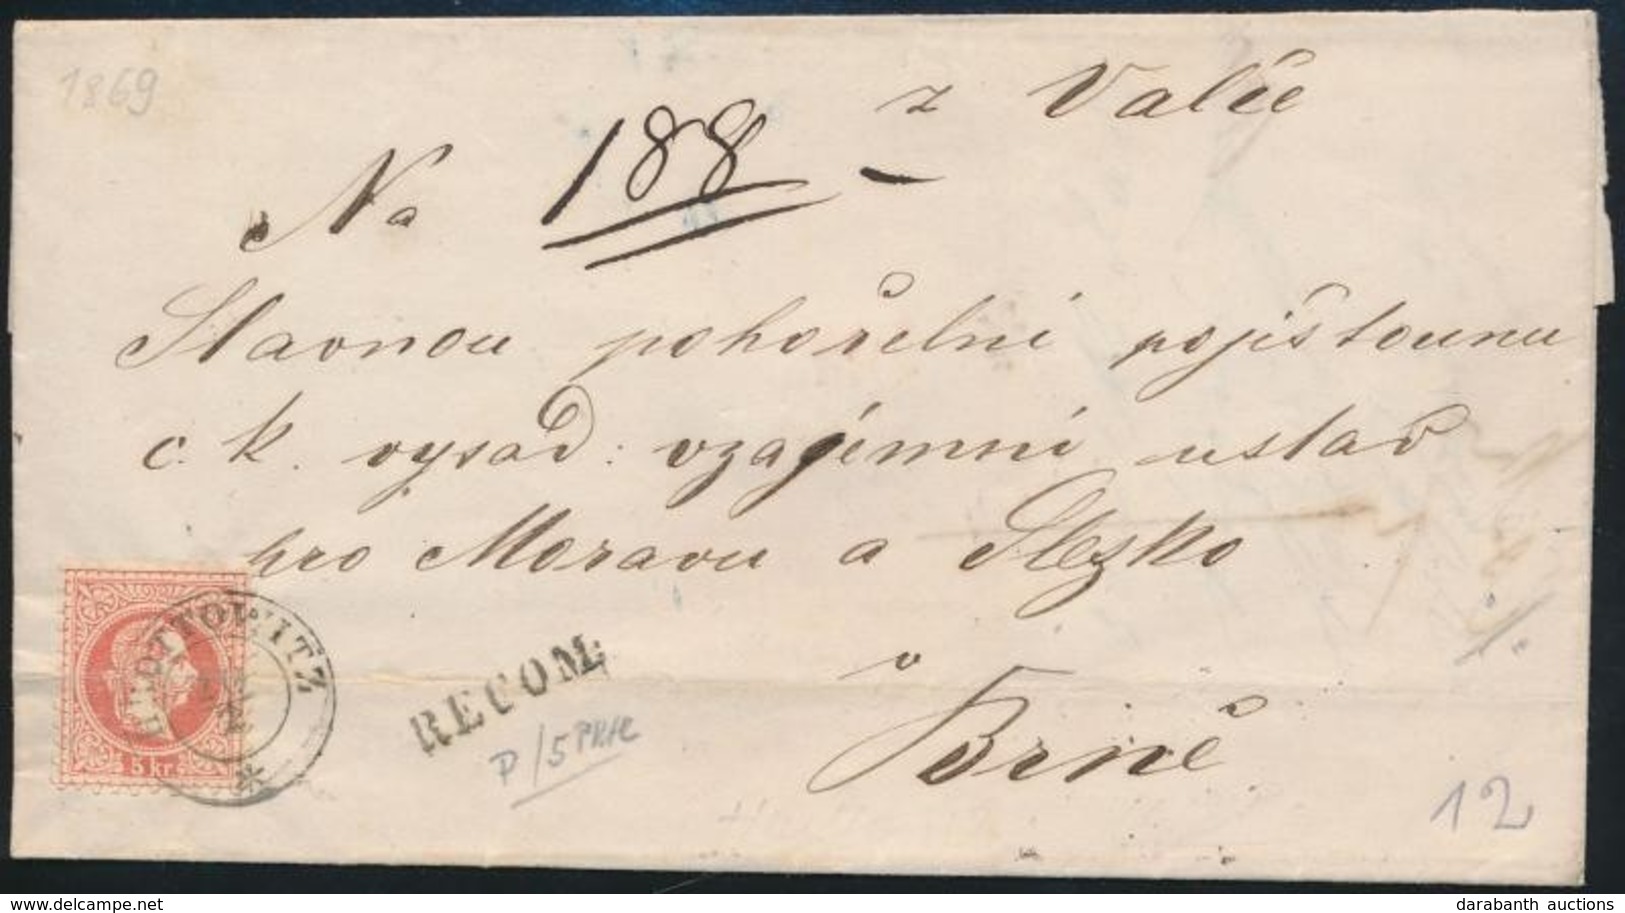 1869
z Valče
Na 188 –
Slavnou pohořelní pojištounu
c. k. vysad: vzajémni ustav
pro Moravu a Slezko
v
Brně
5 kr.
RECOM:
P/5
12
www.delcampe.net
darabanth auctions